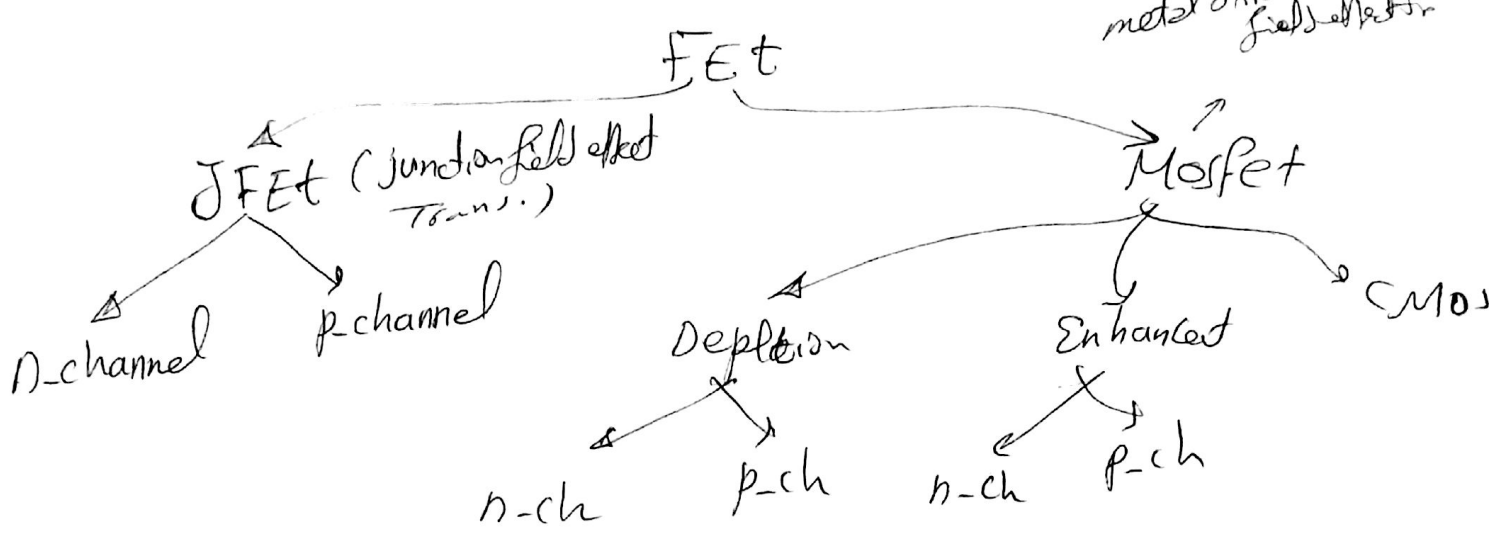 metal
field effect tr
FEt
JFEt (junction field effect
Trans.)
Mosfet
n_channel
p_channel
Depletion
Enhanced
CMOS
n_ch
p_ch
n_ch
p_ch